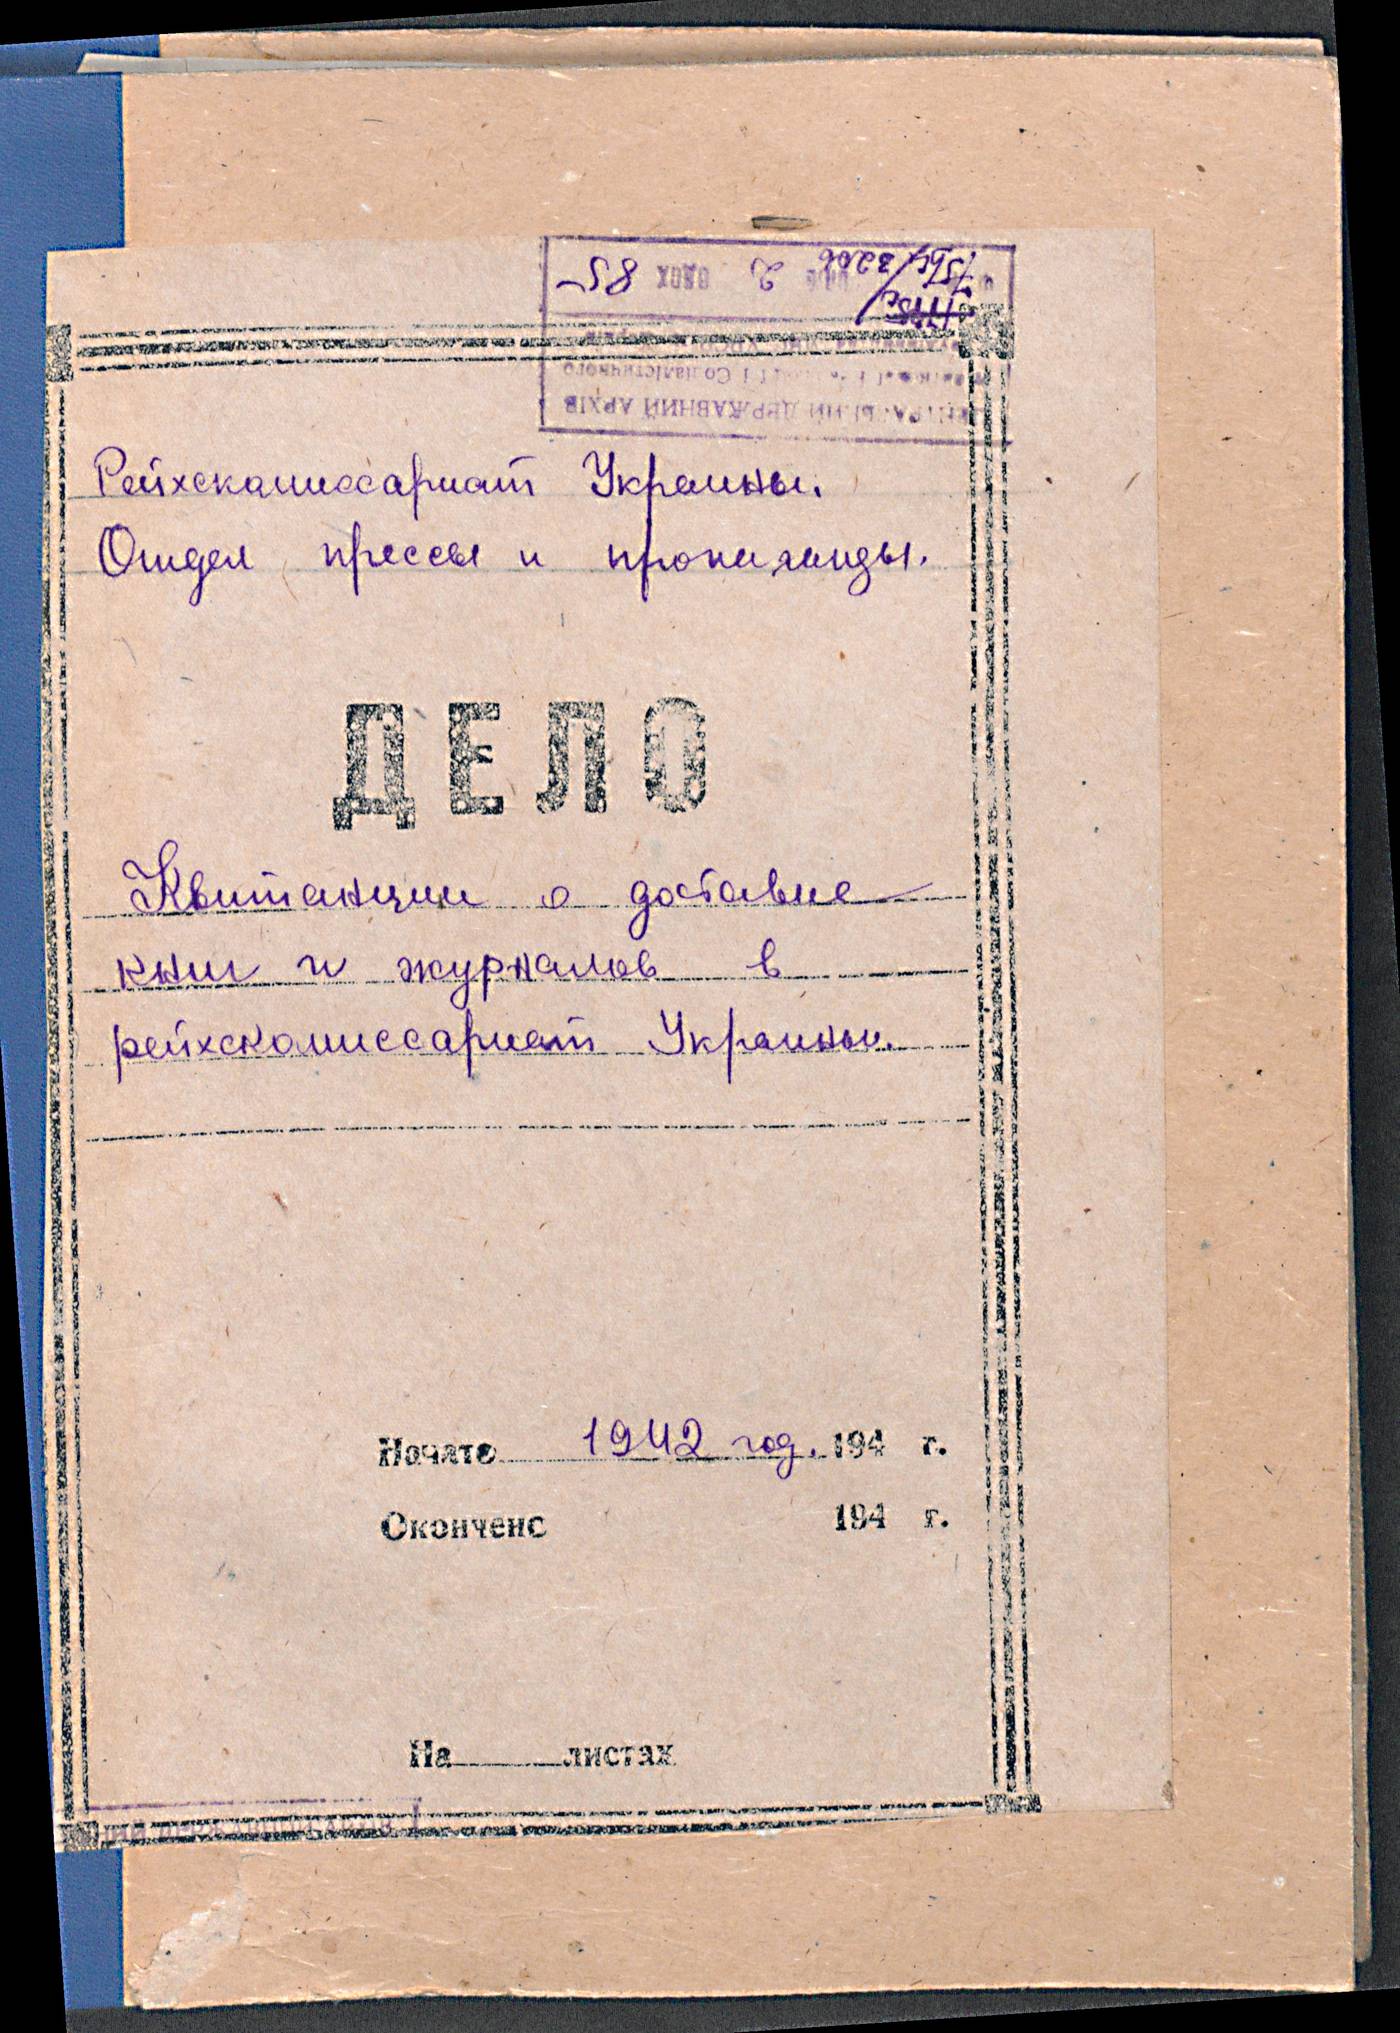 ЦЕНТРАЛЬНИЙ ДЕРЖАВНИЙ АРХІВ
і Соціалістичного
2 85
Рейхскомиссариат Украины.
Отдел прессы и пропаганды.
ДЕЛО
Квитанции о доставке
книг и журналов в
рейхскомиссариат Украины.
Начато 1942 год. 194 г.
Окончено 194 г.
На листах